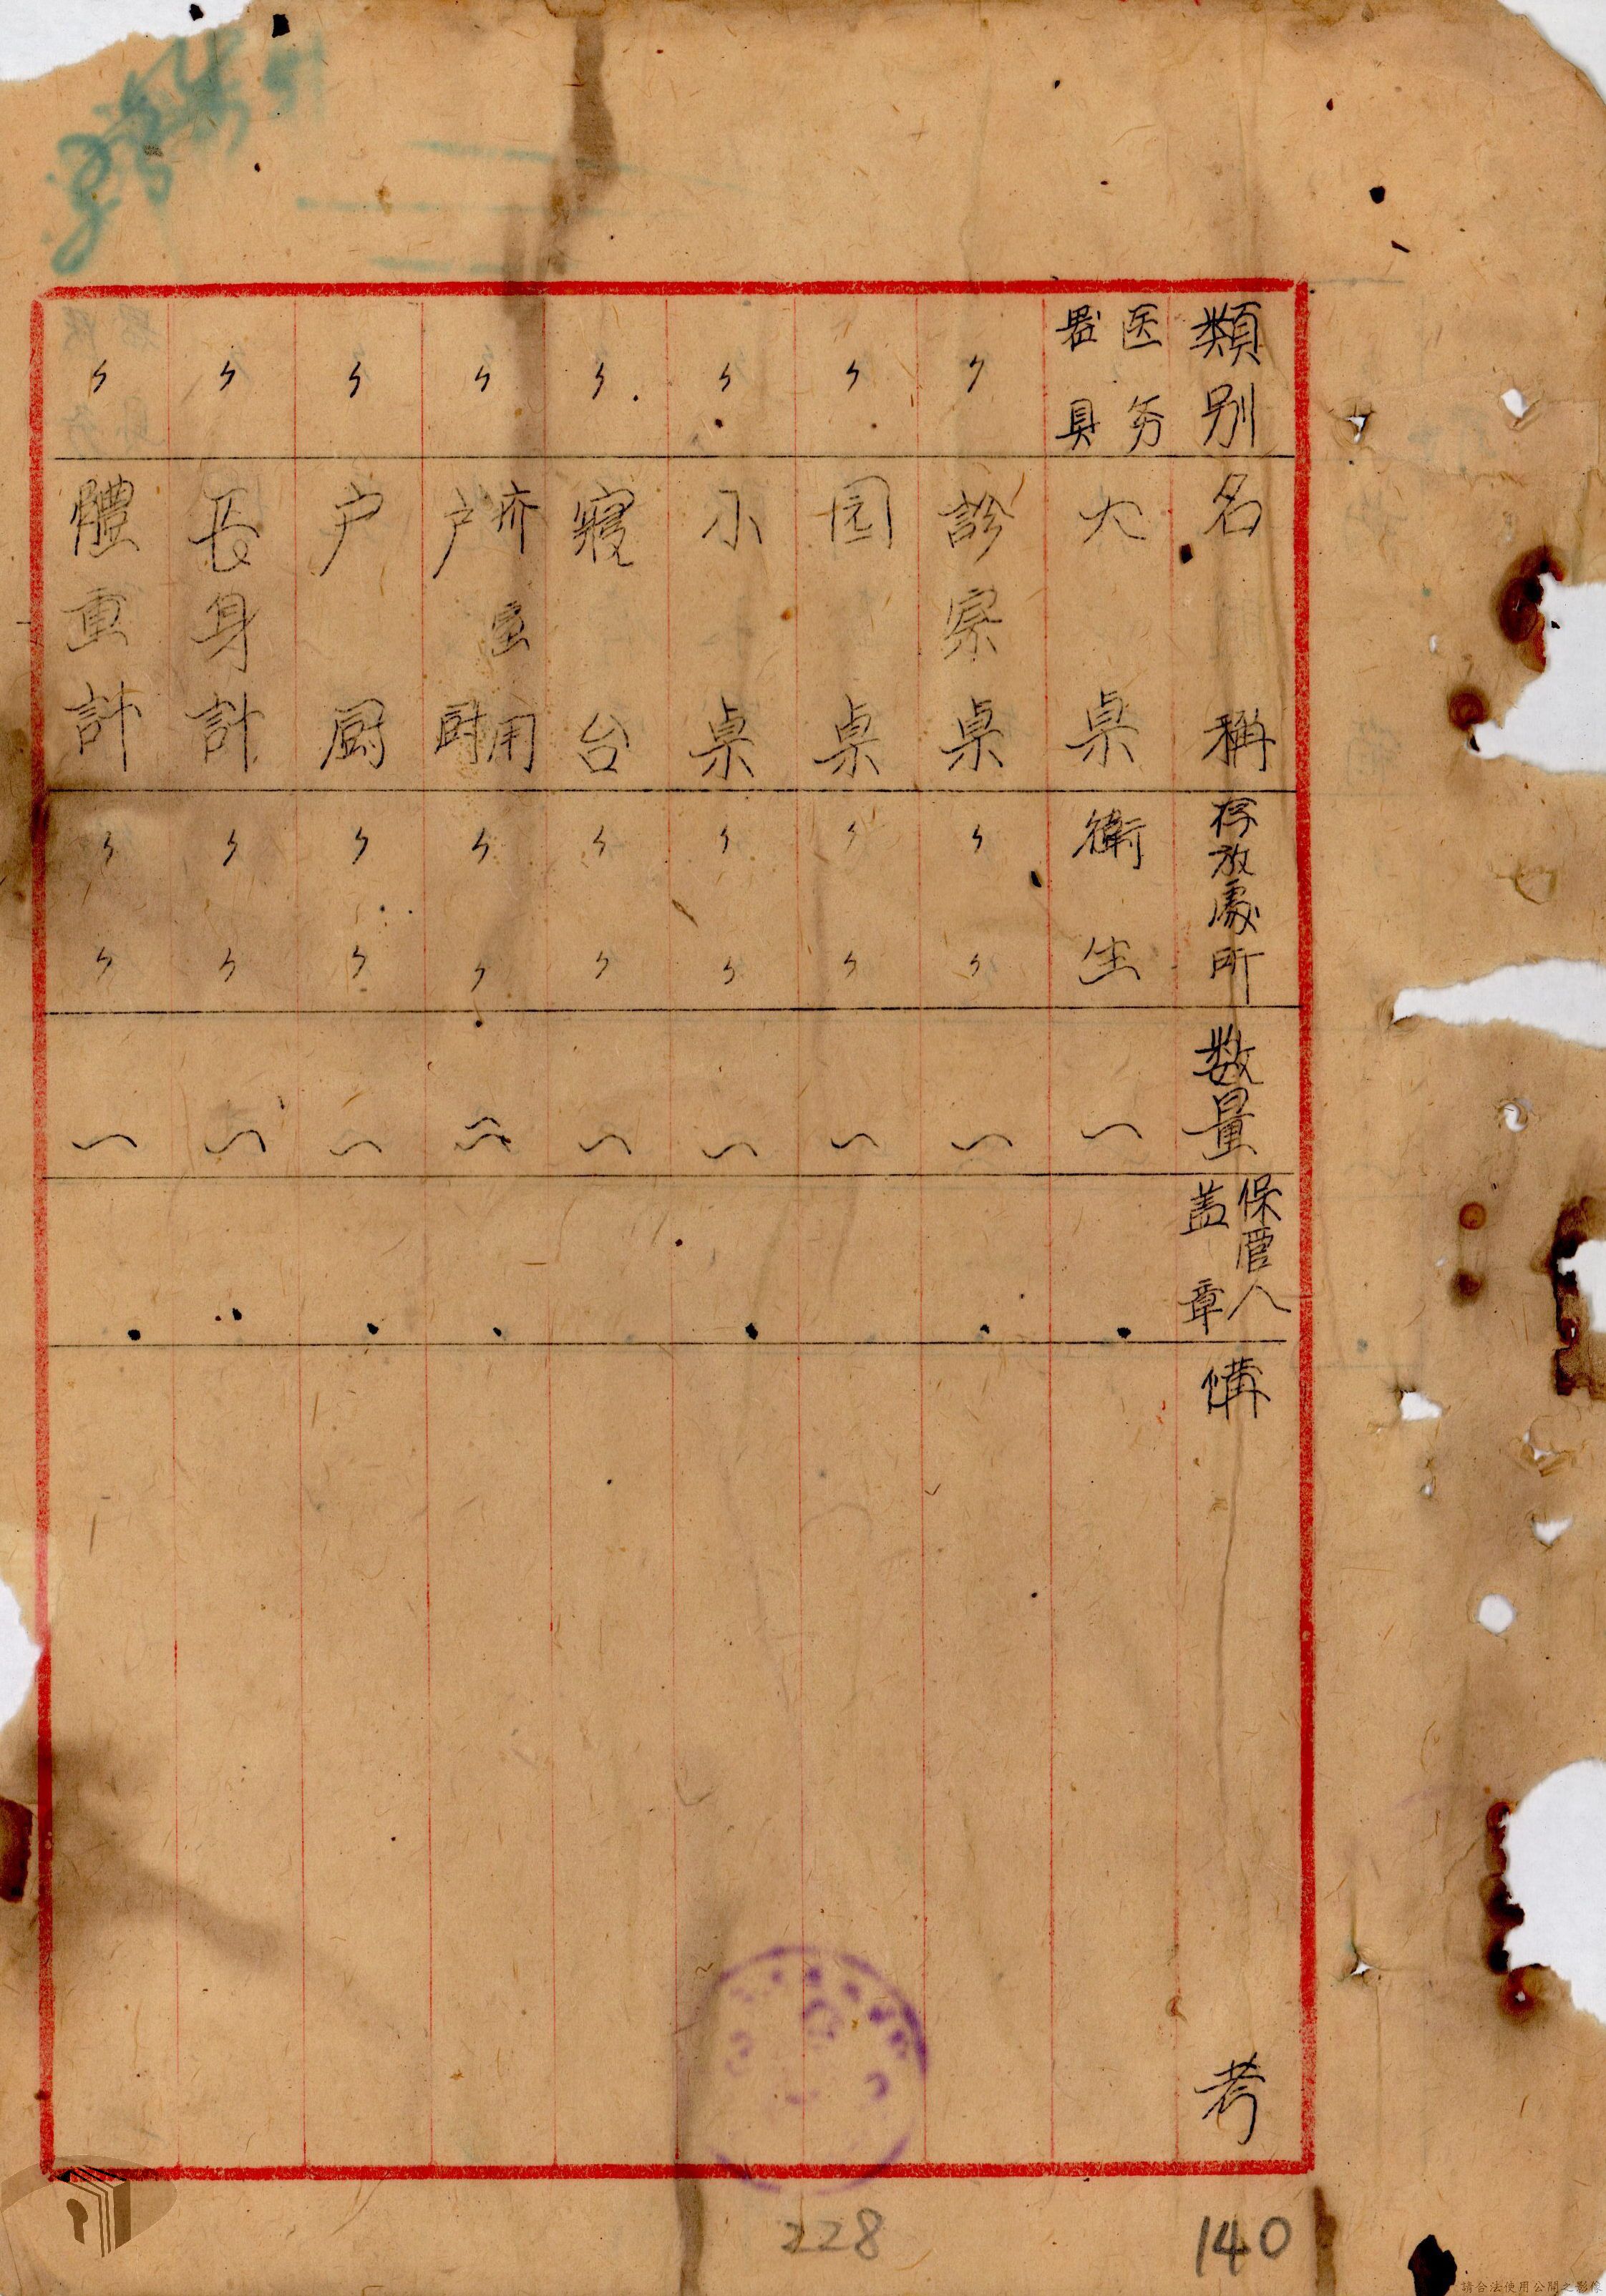 類別 名稱 存放處所 数量 保管人盖章 備考
医务器具 大桌 衛生 一
〃 診察桌 〃〃 一
〃 园桌 〃〃 一
〃 小桌 〃〃 一
〃 寝台 〃〃 一
〃 户厨 〃〃 二
〃 户厨 〃〃 一
〃 長身計 〃〃 一
〃 體重計 〃〃 一
228
140
請合法使用公開之影像